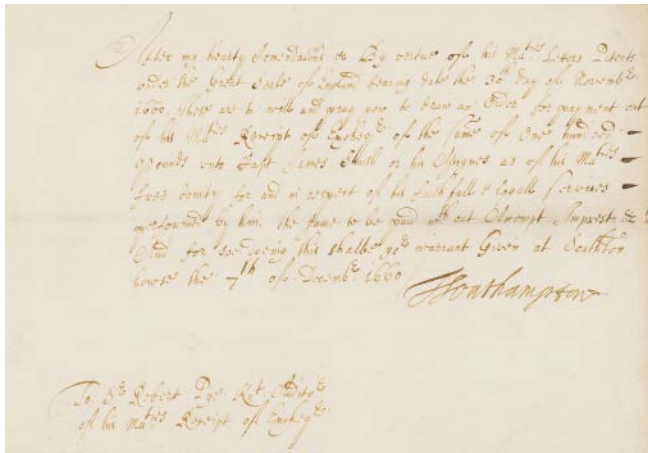 After my hearty Comendacons &c By vertue of his Maties Letters Patents
under the Great Seale of England bearing date the 30th day of Novembr
1660. These are to will and pray you to draw an Order for payment out
of his Maties Receipt of Excheqr of the Sume of One hundred
Pounds unto Capt James Smith or his Assignes as of his Maties
free bounty for and in respect of his faithfull & loyall Services
performed by him. the same to be paid without Accompt Imprest &c
And for soe doeing this shalbe yor warrant Given at Southton
house the 7th of Decembr 1660
TSouthampton
To Sr Robert Pye Knt Auditor
of his Maties Receipt of Excheqr